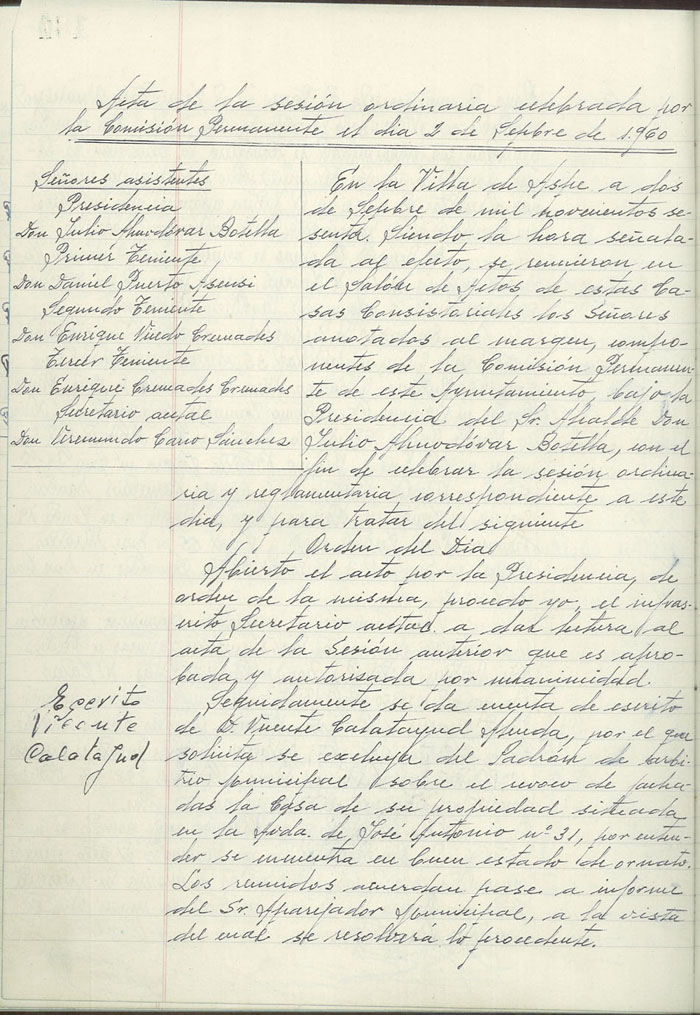 Acta de la sesión ordinaria celebrada por
la Comisión Permanente el dia 2 de Sepbre de 1.960
Señores asistentes
Presidencia
Don Julio Almodóvar Botella
Primer Teniente
Don Daniel Puerto Asensi
Segundo Teniente
Don Enrique Cremades
Tercer Teniente
Don Enrique Cremades Cremades
Secretario acctal
Don Veremundo Cano Sánchez
En la Villa de Aspe a dos
de Sepbre de mil novecientos se-
senta. Siendo la hora señala-
da al efecto, se reunieron en
el Salón de Actos de estas Ca-
sas Consistoriales los Señores
anotados al margen, compo-
nentes de la Comisión Permanen-
te de este Ayuntamiento, bajo la
Presidencia del Sr. Alcalde Don
Julio Almodóvar Botella, con el
fin de celebrar la sesión ordina-
ria y reglamentaria, correspondiente a este
dia, y para tratar del siguiente
Orden del Dia
Abierto el acto por la Presidencia, de
orden de la misma, procedo yo, el infras-
crito Secretario acctal. a dar lectura al
acta de la Sesión anterior que es apro-
bada y autorizada por unanimidad.
Escrito
Vicente
Calatayud
Seguidamente se da cuenta de escrito
de D. Vicente Calatayud, por el que
solicita se excluya del Padrón de arbi-
trio Municipal sobre el revoco de facha-
das la Casa de su propiedad situada
en la Avda. de José Antonio nº 31, por enten-
der se encuentra en buen estado de ornato.
Los reunidos acuerdan pase a informe
del Sr. Aparejador Municipal, a la vista
del cual se resolverá lo procedente.